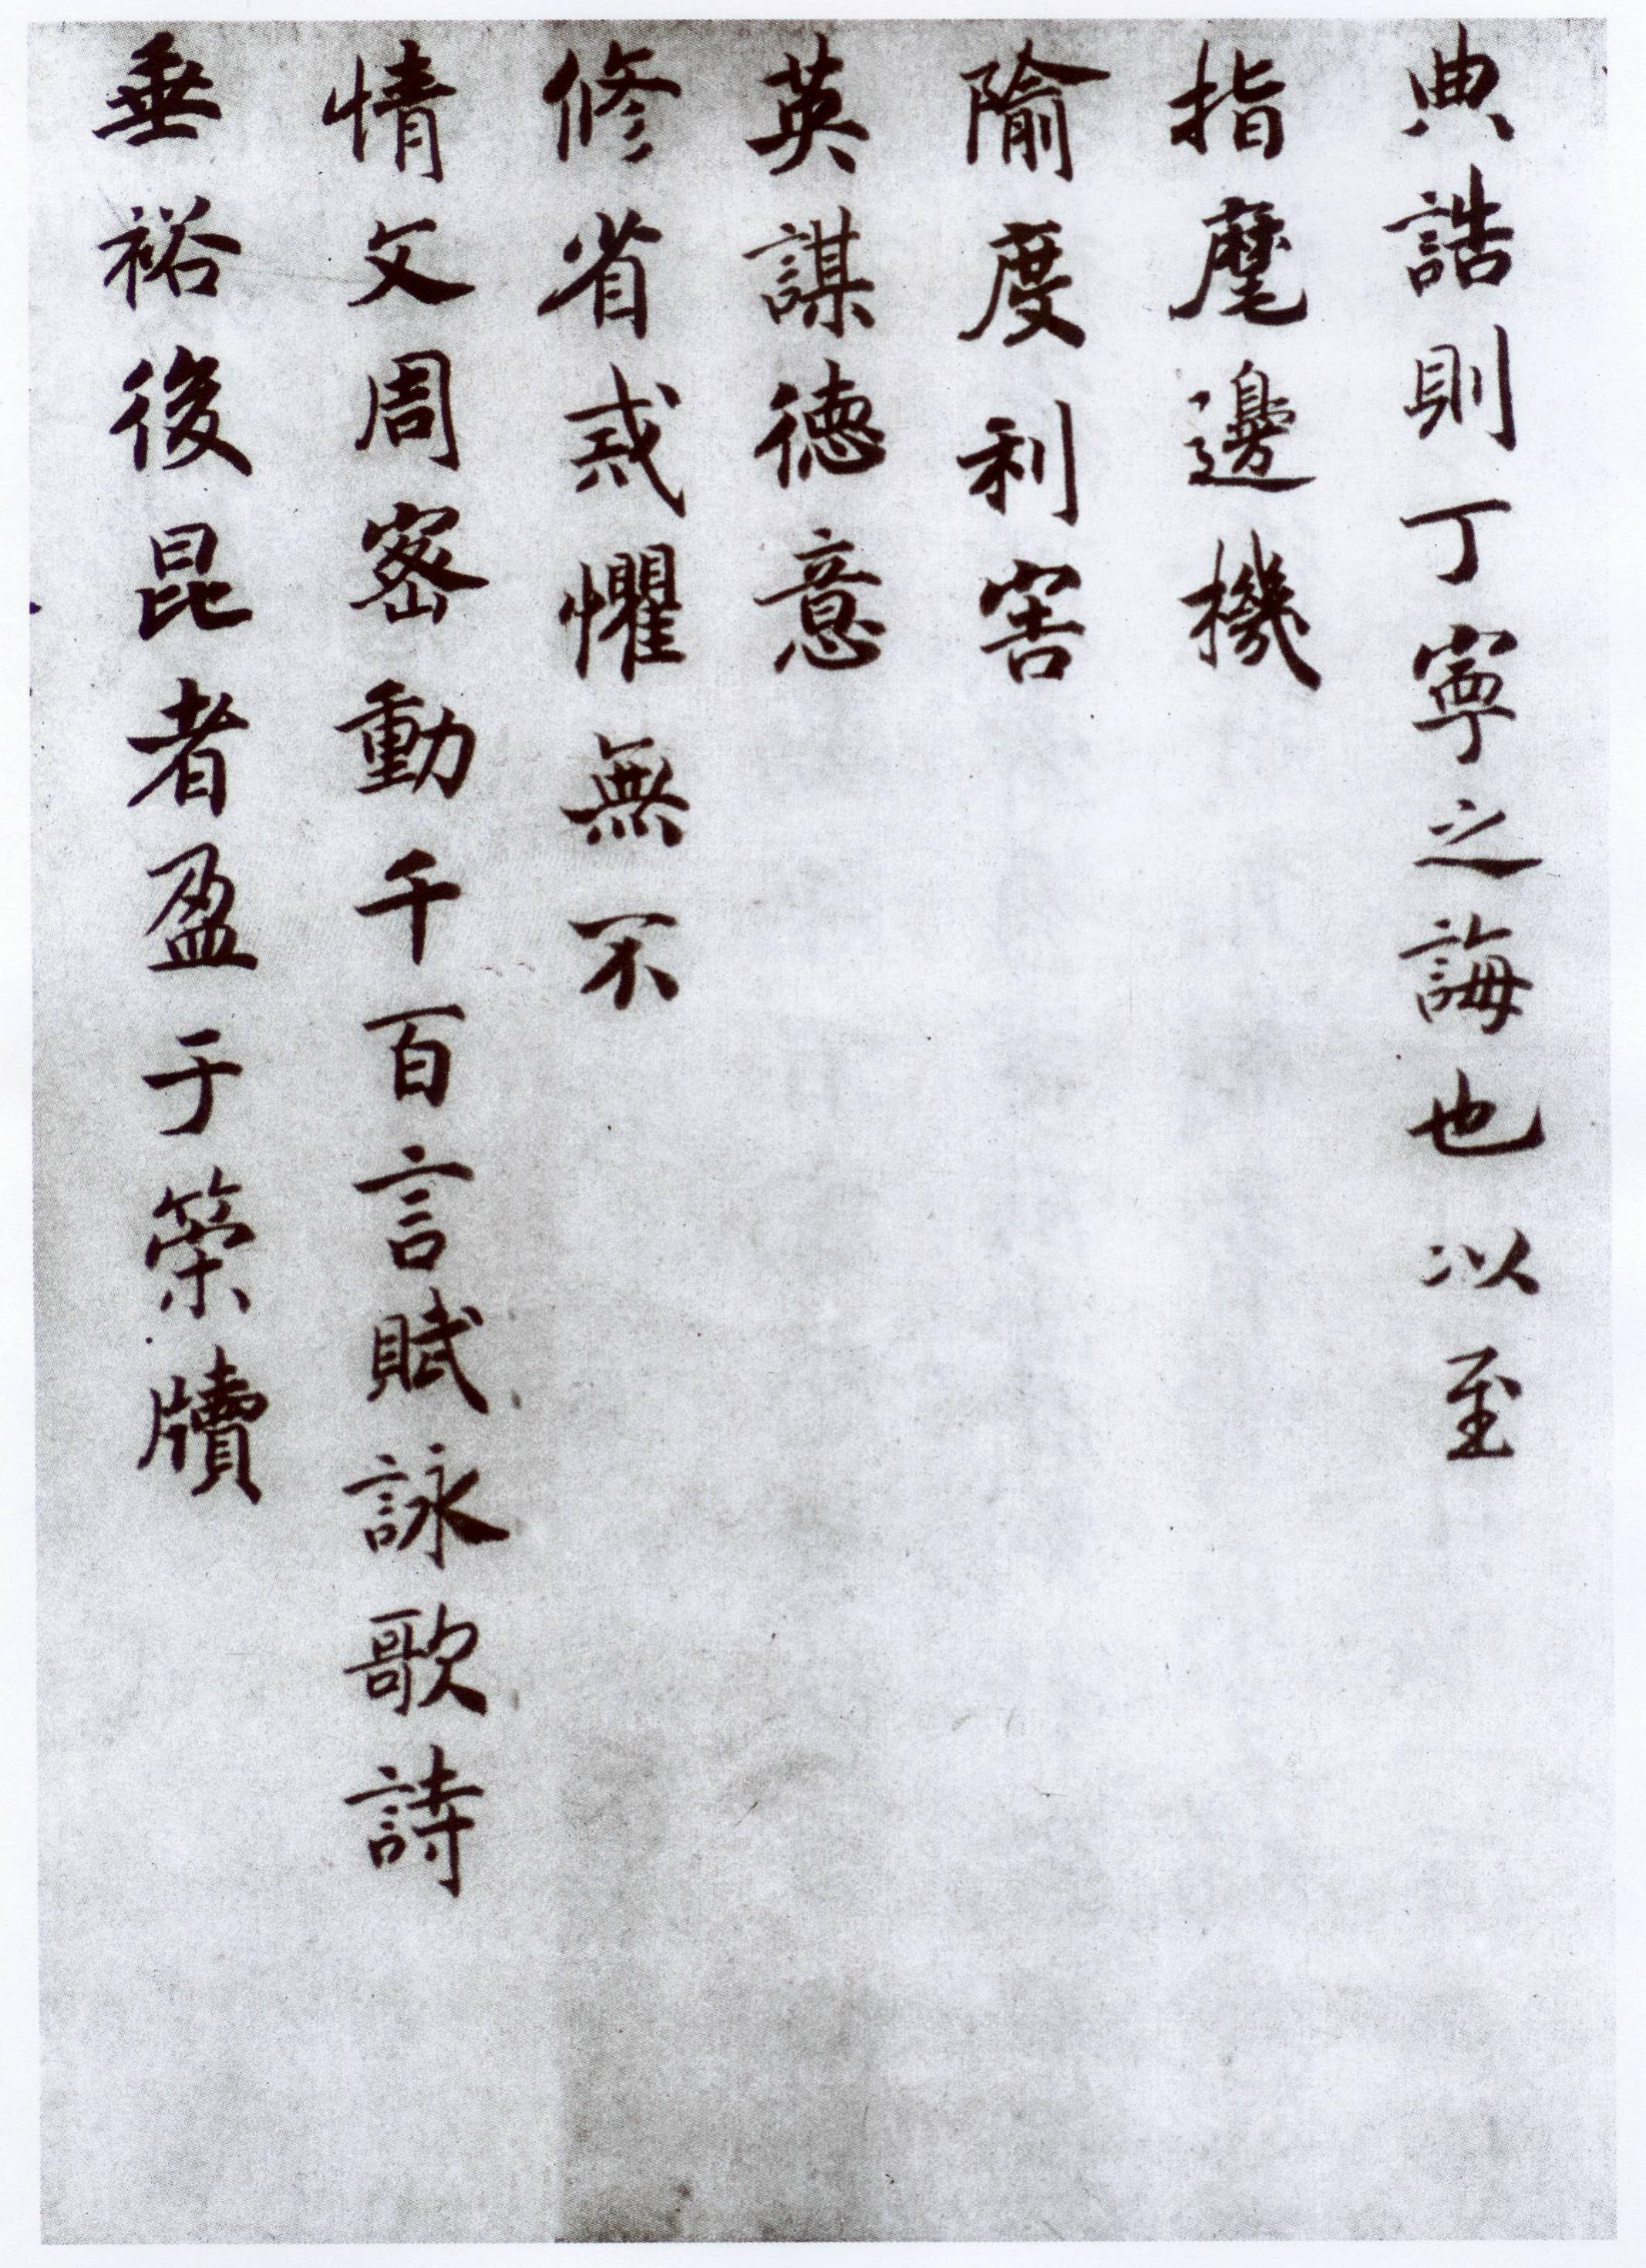 典誥則丁寧之誨也以至
指麾邊機
隃度利害
英謀德意
修省戒懼無不
情文周密動千百言賦詠歌詩
垂裕後昆者盈于策牘